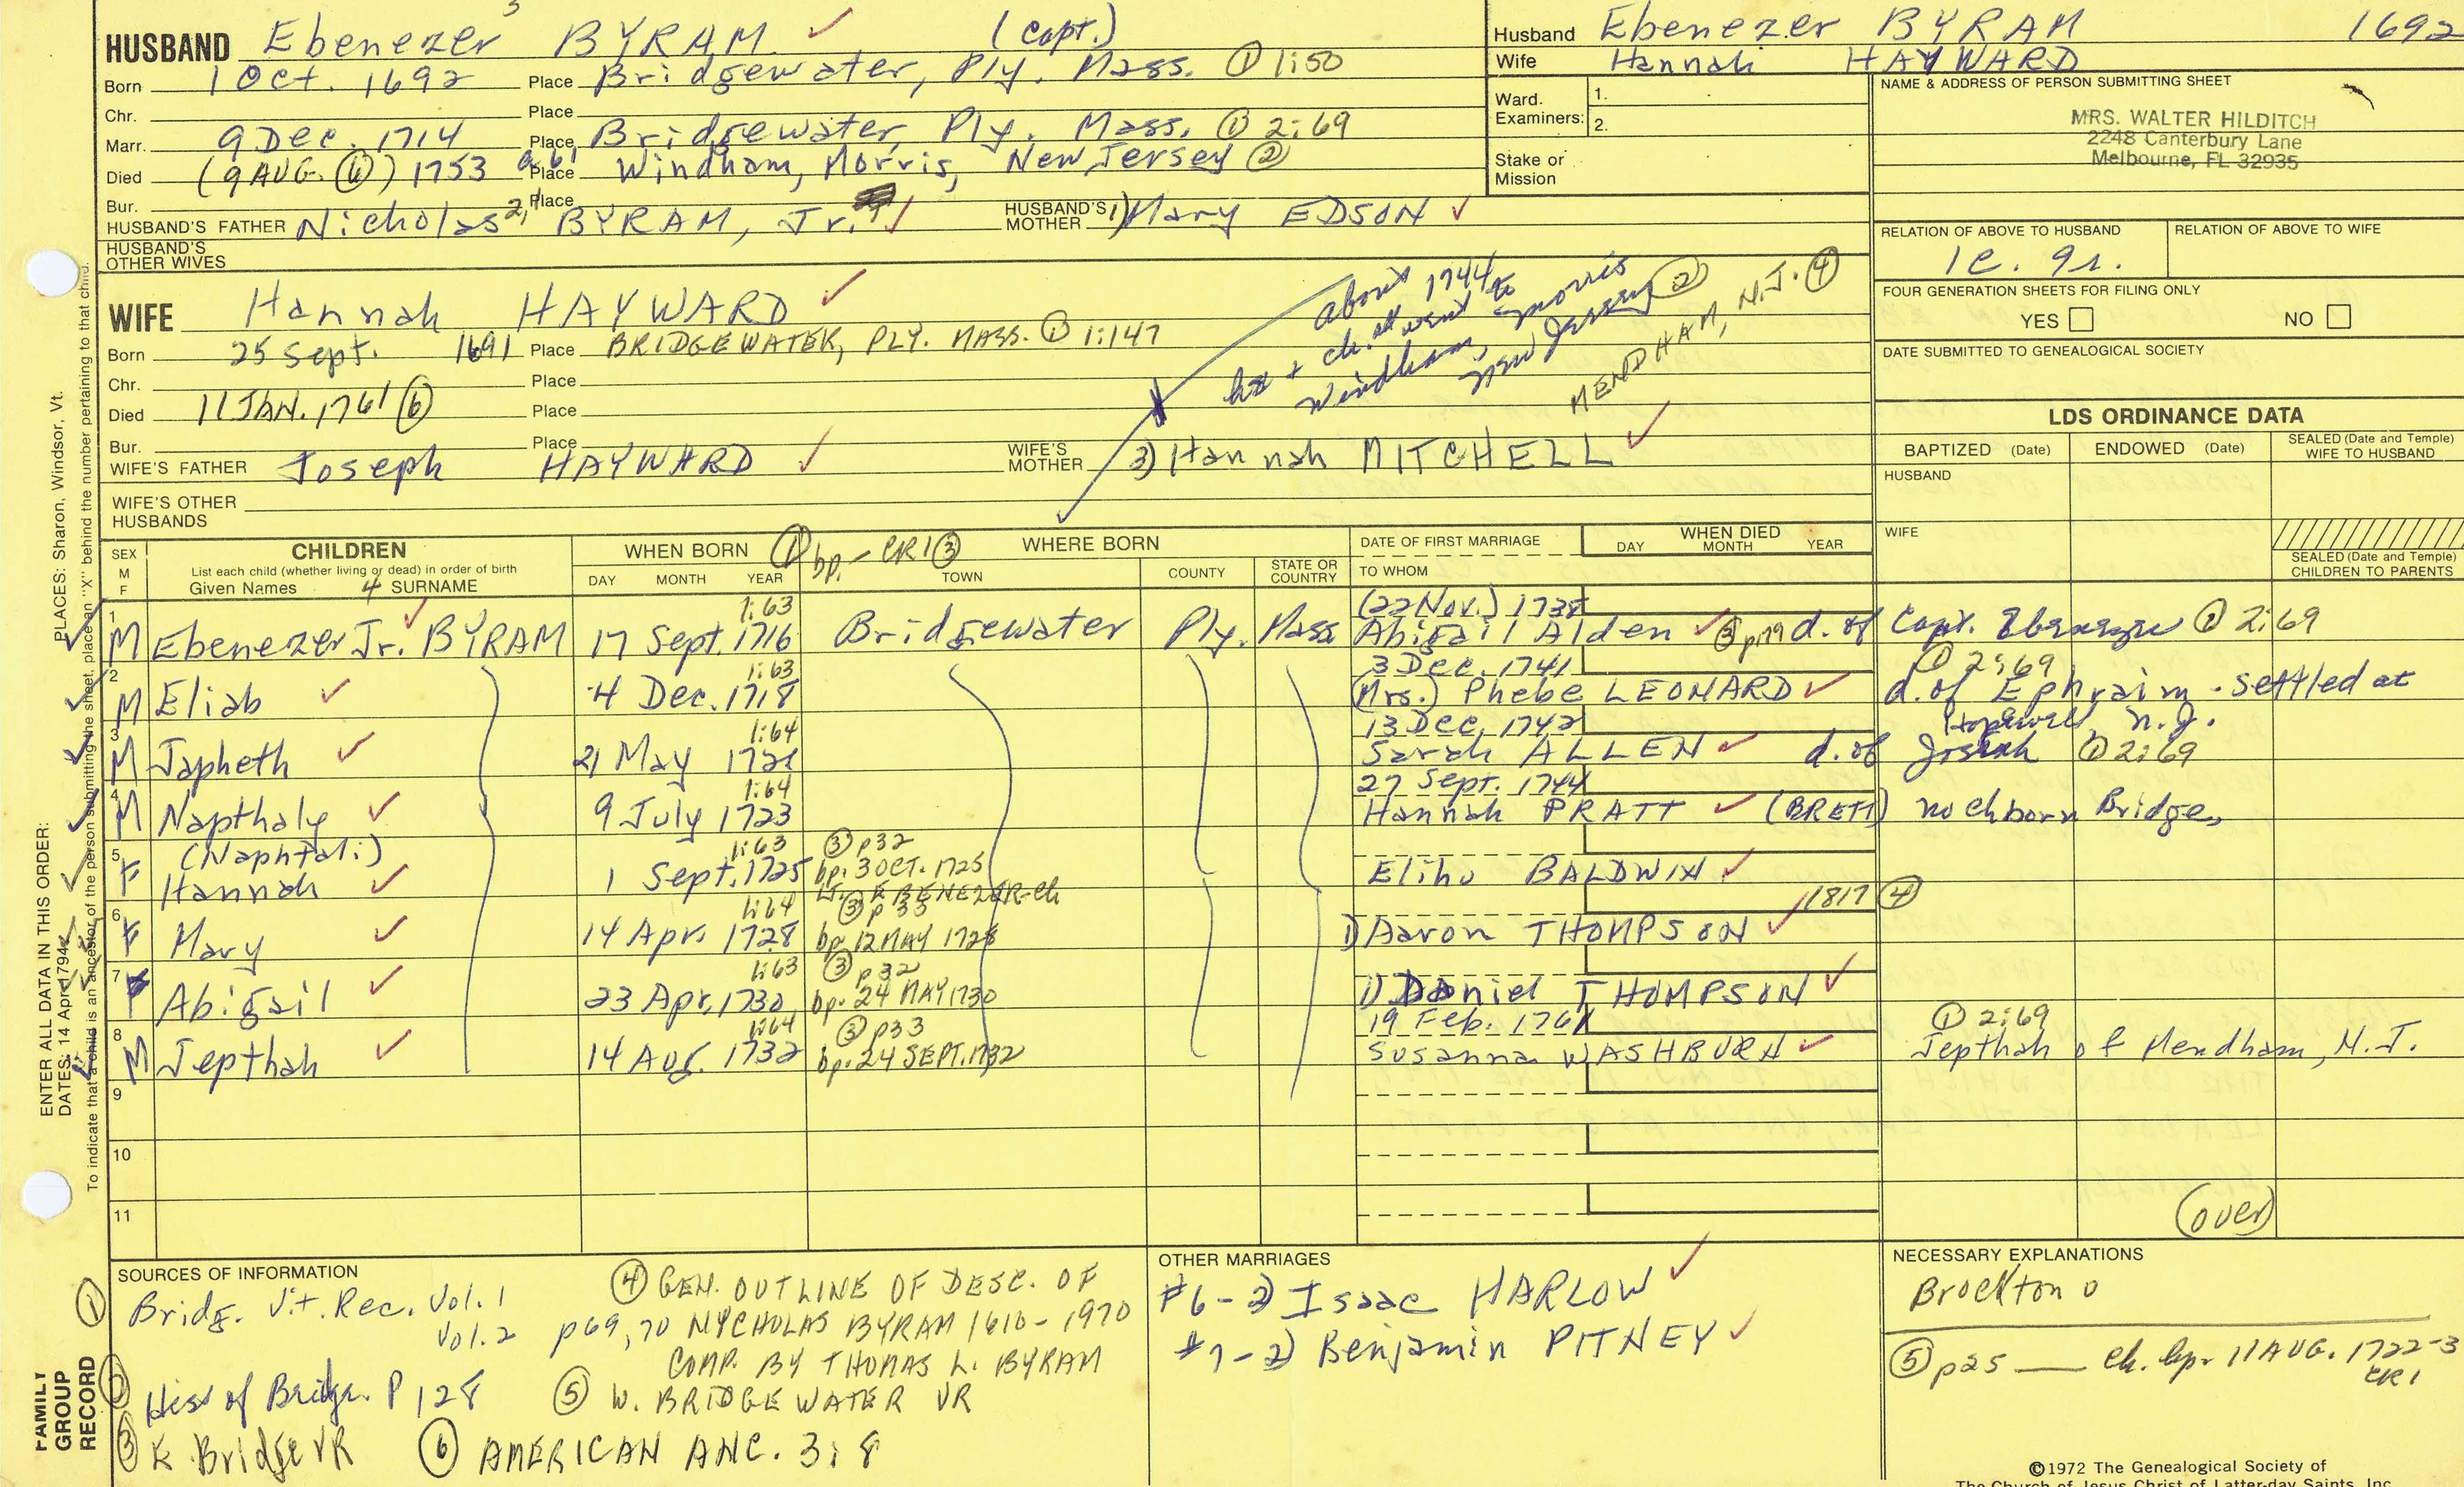 HUSBAND Ebenezer 3 BYRAM ✓ (Capt.)
Born 1 Oct. 1692 Place Bridgewater, Ply. Mass. ① 1:50
Chr. Place
Marr. 9 Dec. 1714 Place Bridgewater, Ply. Mass. ① 2:69
Died (9 AUG. ⑥) 1753 a. 61 Place Windham, Morris, New Jersey ②
Bur. Place
HUSBAND'S FATHER Nicholas 2, BYRAM, Jr. ✓ HUSBAND'S MOTHER 1) Mary EDSON ✓
HUSBAND'S OTHER WIVES
WIFE Hannah HAYWARD ✓
Born 25 Sept. 1691 Place BRIDGEWATER, PLY. MASS. ① 1:147
Chr. Place
Died 11 JAN. 1761 ⑥ Place
Bur. Place
WIFE'S FATHER Joseph HAYWARD ✓ WIFE'S MOTHER 3) Hannah MITCHELL ✓
WIFE'S OTHER HUSBANDS
about 1744
+ ch. all went to
Windham, Morris
New Jersey ②
MENDHAM, N.J. ④
Husband Ebenezer BYRAM 1692
Wife Hannah HAYWARD
Ward. Examiners: 1.
2.
Stake or Mission
NAME & ADDRESS OF PERSON SUBMITTING SHEET
MRS. WALTER HILDITCH
2248 Canterbury Lane
Melbourne, FL 32935
RELATION OF ABOVE TO HUSBAND RELATION OF ABOVE TO WIFE
FOUR GENERATION SHEETS FOR FILING ONLY
YES NO
DATE SUBMITTED TO GENEALOGICAL SOCIETY
LDS ORDINANCE DATA
BAPTIZED (Date) ENDOWED (Date) SEALED (Date and Temple) WIFE TO HUSBAND
HUSBAND
WIFE
SEALED (Date and Temple) CHILDREN TO PARENTS
SEX M F CHILDREN
List each child (whether living or dead) in order of birth
Given Names 4 SURNAME
WHEN BORN ① DAY MONTH YEAR
bp. - CR1 ③ WHERE BORN
TOWN COUNTY STATE OR COUNTRY
DATE OF FIRST MARRIAGE
TO WHOM
WHEN DIED DAY MONTH YEAR
1:63 (22 Nov.) 1738
1 M Ebenezer Jr. BYRAM ✓ 17 Sept. 1716 Bridgewater Ply. Mass Abigail Alden ✓ ③ p19 d. of Capt. Ebenezer ① 2:69
1:63 3 Dec. 1741 ① 2:69
2 M Eliab ✓ 4 Dec. 1718 (Mrs.) Phebe LEONARD ✓ d. of Ephraim - settled at
Hopewell, N.J.
1:64 13 Dec. 1742
3 M Japheth ✓ 21 May 1721 Sarah ALLEN ✓ d. of Josiah ① 2:69
1:64 27 Sept. 1744
4 M Napthaly ✓ 9 July 1723 Hannah PRATT ✓ (BRETT) no ch born Bridge,
(Naphtali) 1:63 ③ p32
5 F Hannah ✓ 1 Sept. 1725 bp. 3 OCT. 1725 Elihu BALDWIN ✓
EBENEZER-ch
1:64 ③ p 33 1817 ④
6 F Mary ✓ 14 Apr. 1728 bp. 12 MAY 1728 1) Aaron THOMPSON ✓
1:63 ③ p32
7 F Abigail ✓ 23 Apr. 1730 bp. 24 MAY 1730 1) Daniel THOMPSON ✓
1:64 ③ p33 19 Feb. 1761 ① 2:69
8 M Jepthah ✓ 14 Aug. 1732 bp. 24 SEPT. 1732 Susanna WASHBURN ✓ Jepthah of Mendham, N.J.
9
10
11
(over)
SOURCES OF INFORMATION
① Bridg. Vit. Rec. Vol. 1
Vol. 2
② Hist of Bridge. P 128
③ E Bridge VR
④ GEN. OUTLINE OF DESC. OF
p69, 70 NYCHOLAS BYRAM 1610-1970
COMP. BY THOMAS L. BYRAM
⑤ W. BRIDGEWATER VR
⑥ AMERICAN ANC. 3:8
OTHER MARRIAGES
#6-2) Isaac HARLOW ✓
#7-2) Benjamin PITNEY ✓
NECESSARY EXPLANATIONS
Brockton 0
⑤ p25 — ch. bp. 11 AUG. 1722-3
CR1
©1972 The Genealogical Society of
The Church of Jesus Christ of Latter-day Saints, Inc.
ENTER ALL DATA IN THIS ORDER:
DATES: 14 Apr 1794
PLACES: Sharon, Windsor, Vt.
To indicate that a child is an ancestor of the person submitting the sheet, place an "X" behind the number pertaining to that child.
FAMILY GROUP RECORD